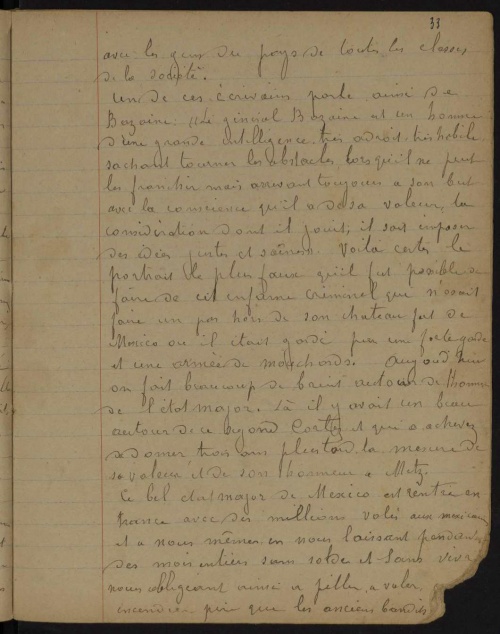 33
avec les gens du pays de toutes les classes
de la société.
un de ces écrivains parle ainsi de
Bazaine. "Le général Bazaine est un homme
d'une grande intelligence très adroit, très habile
sachant tourner les obstacles lorsqu'il ne peut
les franchir mais arrivant toujours a son but
avec la conscience qu'il a de sa valeur, la
considération dont il jouit, il sait imposer
des idées justes et saines. Voilà certes le
portrait le plus faux qu'il fut possible de
faire de cet enfame criminel qui n'osait
faire un pas hors de son chateau fort de
Mexico ou il était gardé par une forte garde
et une armée de mouchards. Aujourd'hui
on fait beaucoup de bruit autour de l'homme
de l'état major. Là il y avait un beau
autour de ce Cortez et qui a achevé
de donner trois ans plus tard la mesure de
sa valeur et de son honneur a Metz.
Ce bel etat major de Mexico est rentré en
france avec des millions volés aux mexicains
et a nous mêmes en nous laissant pendant
des mois entiers sans solde et sans vivres
nous obligeant ainsi a piller, a voler
incendier pir que les anciens bandits